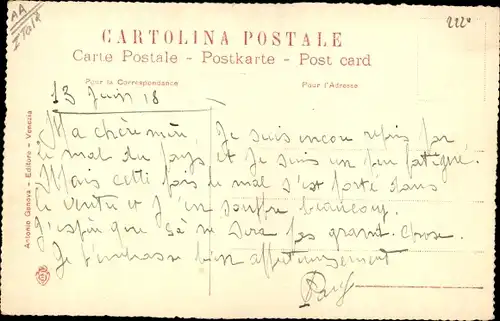 AA
Italie
222
CARTOLINA POSTALE
Carte Postale - Postkarte - Post card
Pour la Correspondance
Pour l'Adresse
13 Juin 18
Ma chère mère, Je suis encore repris par
le mal du pays et je suis un peu fatigué.
Mais cette fois le mal s'est porté dans
le ventre et j'en souffre beaucoup.
J'espère que ce ne sera pas grand chose.
Je t'embrasse bien affectueusement
Antonio Genova - Editore - Venezia